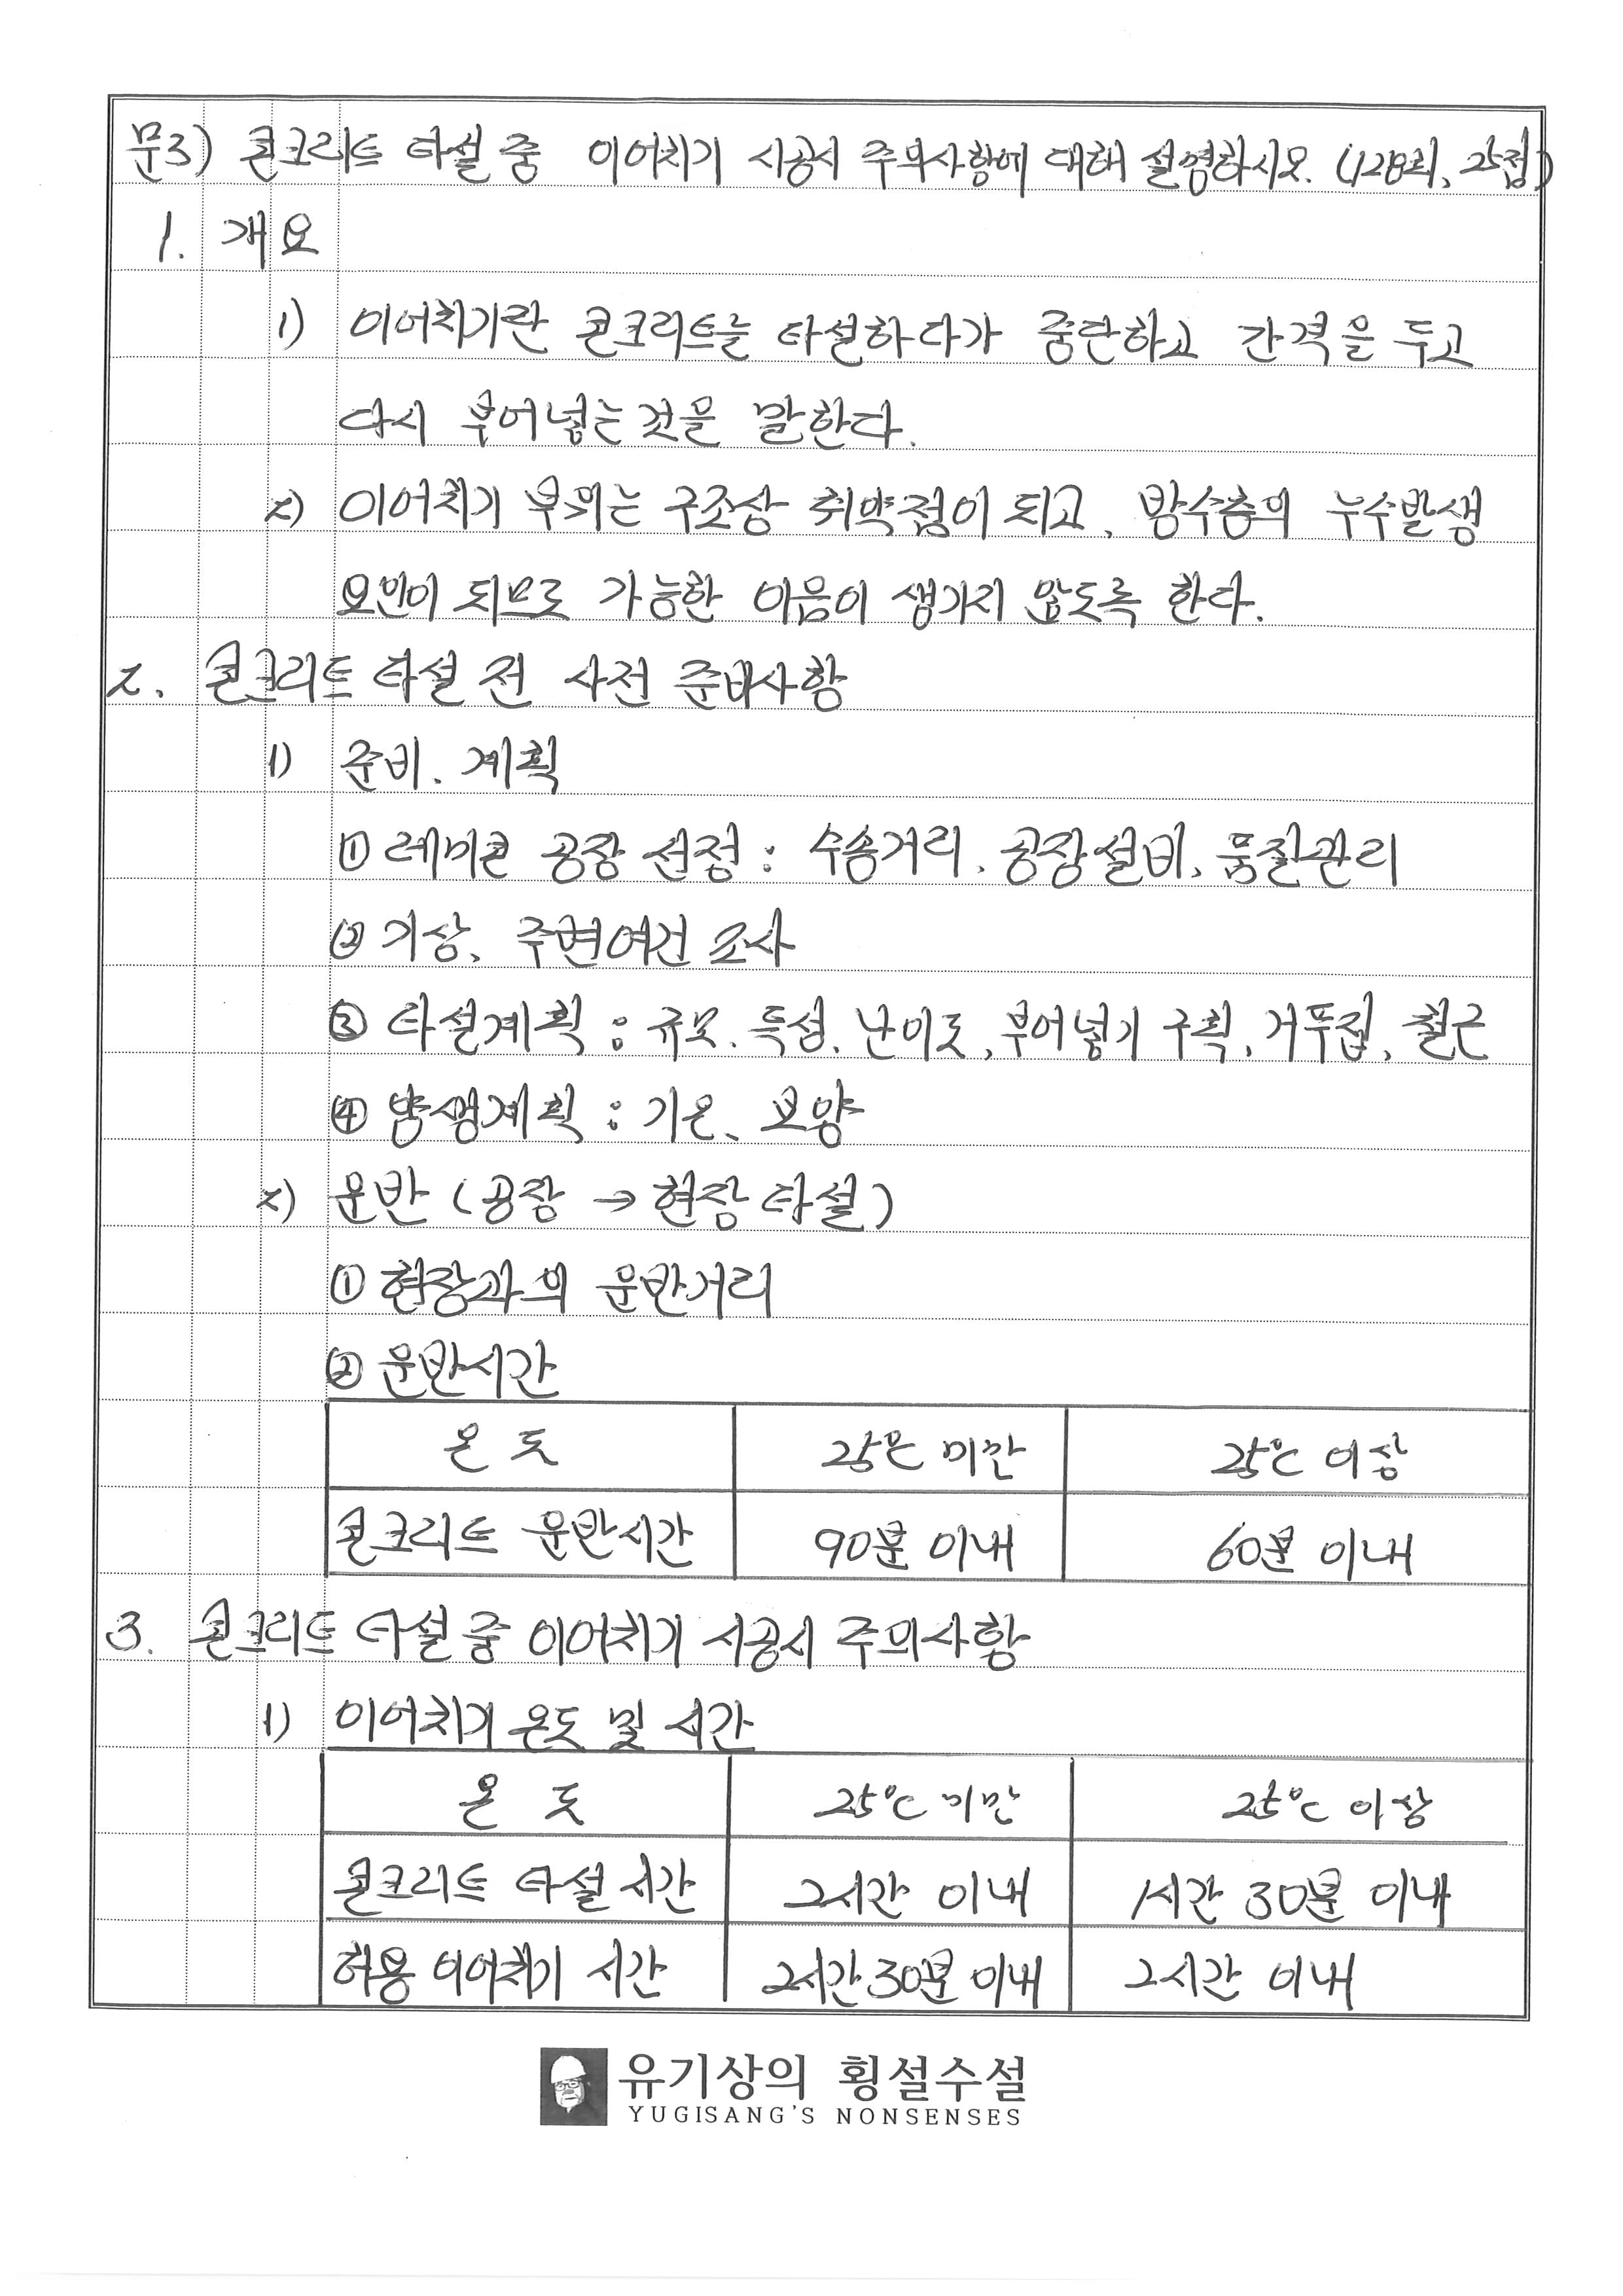 문3) 콘크리트 타설 중 이어치기 시공시 주의사항에 대해 설명하시오. (128회, 25점)
1. 개요
1) 이어치기란 콘크리트를 타설하다가 중단하고 간격을 두고
다시 부어넣는 것을 말한다.
2) 이어치기 부위는 구조상 취약점이 되고, 방수층의 누수발생
요인이 되므로 가능한 이음이 생기지 않도록 한다.
2. 콘크리트 타설 전 사전 준비사항
1) 준비. 계획
① 레미콘 공장 선정 : 수송거리, 공장설비, 품질관리
② 기상, 주변여건 조사
③ 타설계획 : 규모. 특성. 난이도, 부어넣기 구획, 거푸집, 철근
④ 양생계획 : 기온, 보양
2) 운반 (공장 → 현장 타설)
① 현장과의 운반거리
② 운반시간
온 도 25℃ 미만 25℃ 이상
콘크리트 운반시간 90분 이내 60분 이내
3. 콘크리트 타설 중 이어치기 시공시 주의사항
1) 이어치기 온도 및 시간
온 도 25℃ 미만 25℃ 이상
콘크리트 타설 시간 2시간 이내 1시간 30분 이내
허용 이어치기 시간 2시간 30분 이내 2시간 이내
유기상의 횡설수설
YUGISANG'S NONSENSES